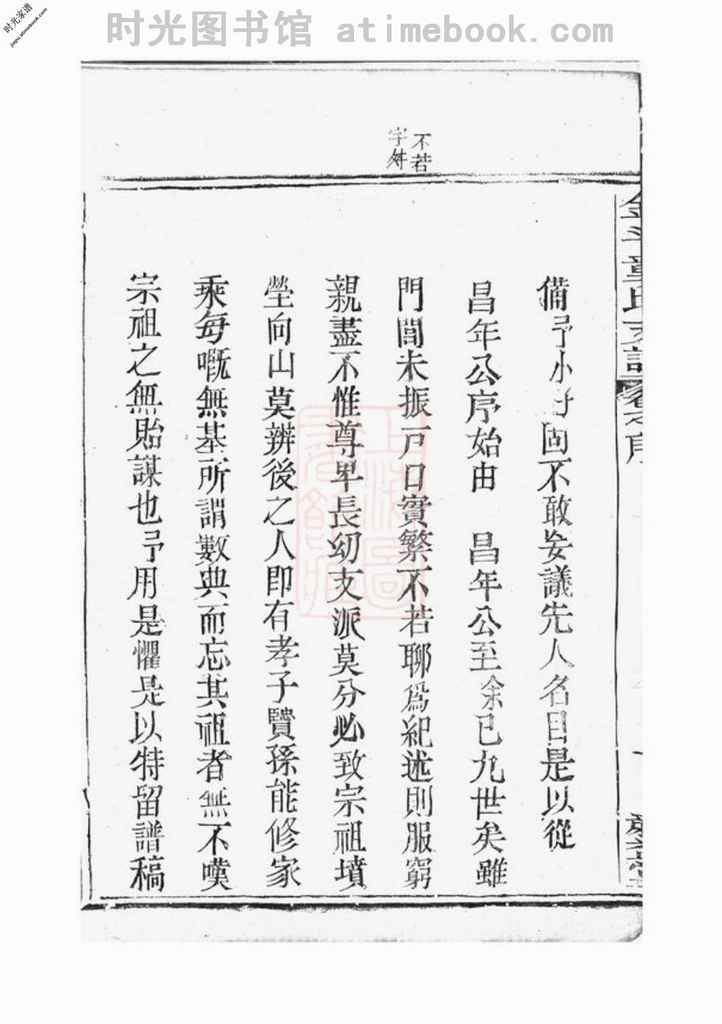 时光图书馆 atimebook.com
时光家谱
jiapu.atimebook.com
不若
字舛
備予小子固不敢妄議先人名目是以從
昌年公序始由　昌年公至余已九世矣雖
門閭未振戸口實繁不若聊爲紀述則服窮
親盡不惟尊卑長幼支派莫分必致宗祖墳
塋向山莫辨後之人即有孝子賢孫能修家
乘每嘅無基所謂數典而忘其祖者無不嘆
宗祖之無貽謀也予用是懼是以特留譜稿